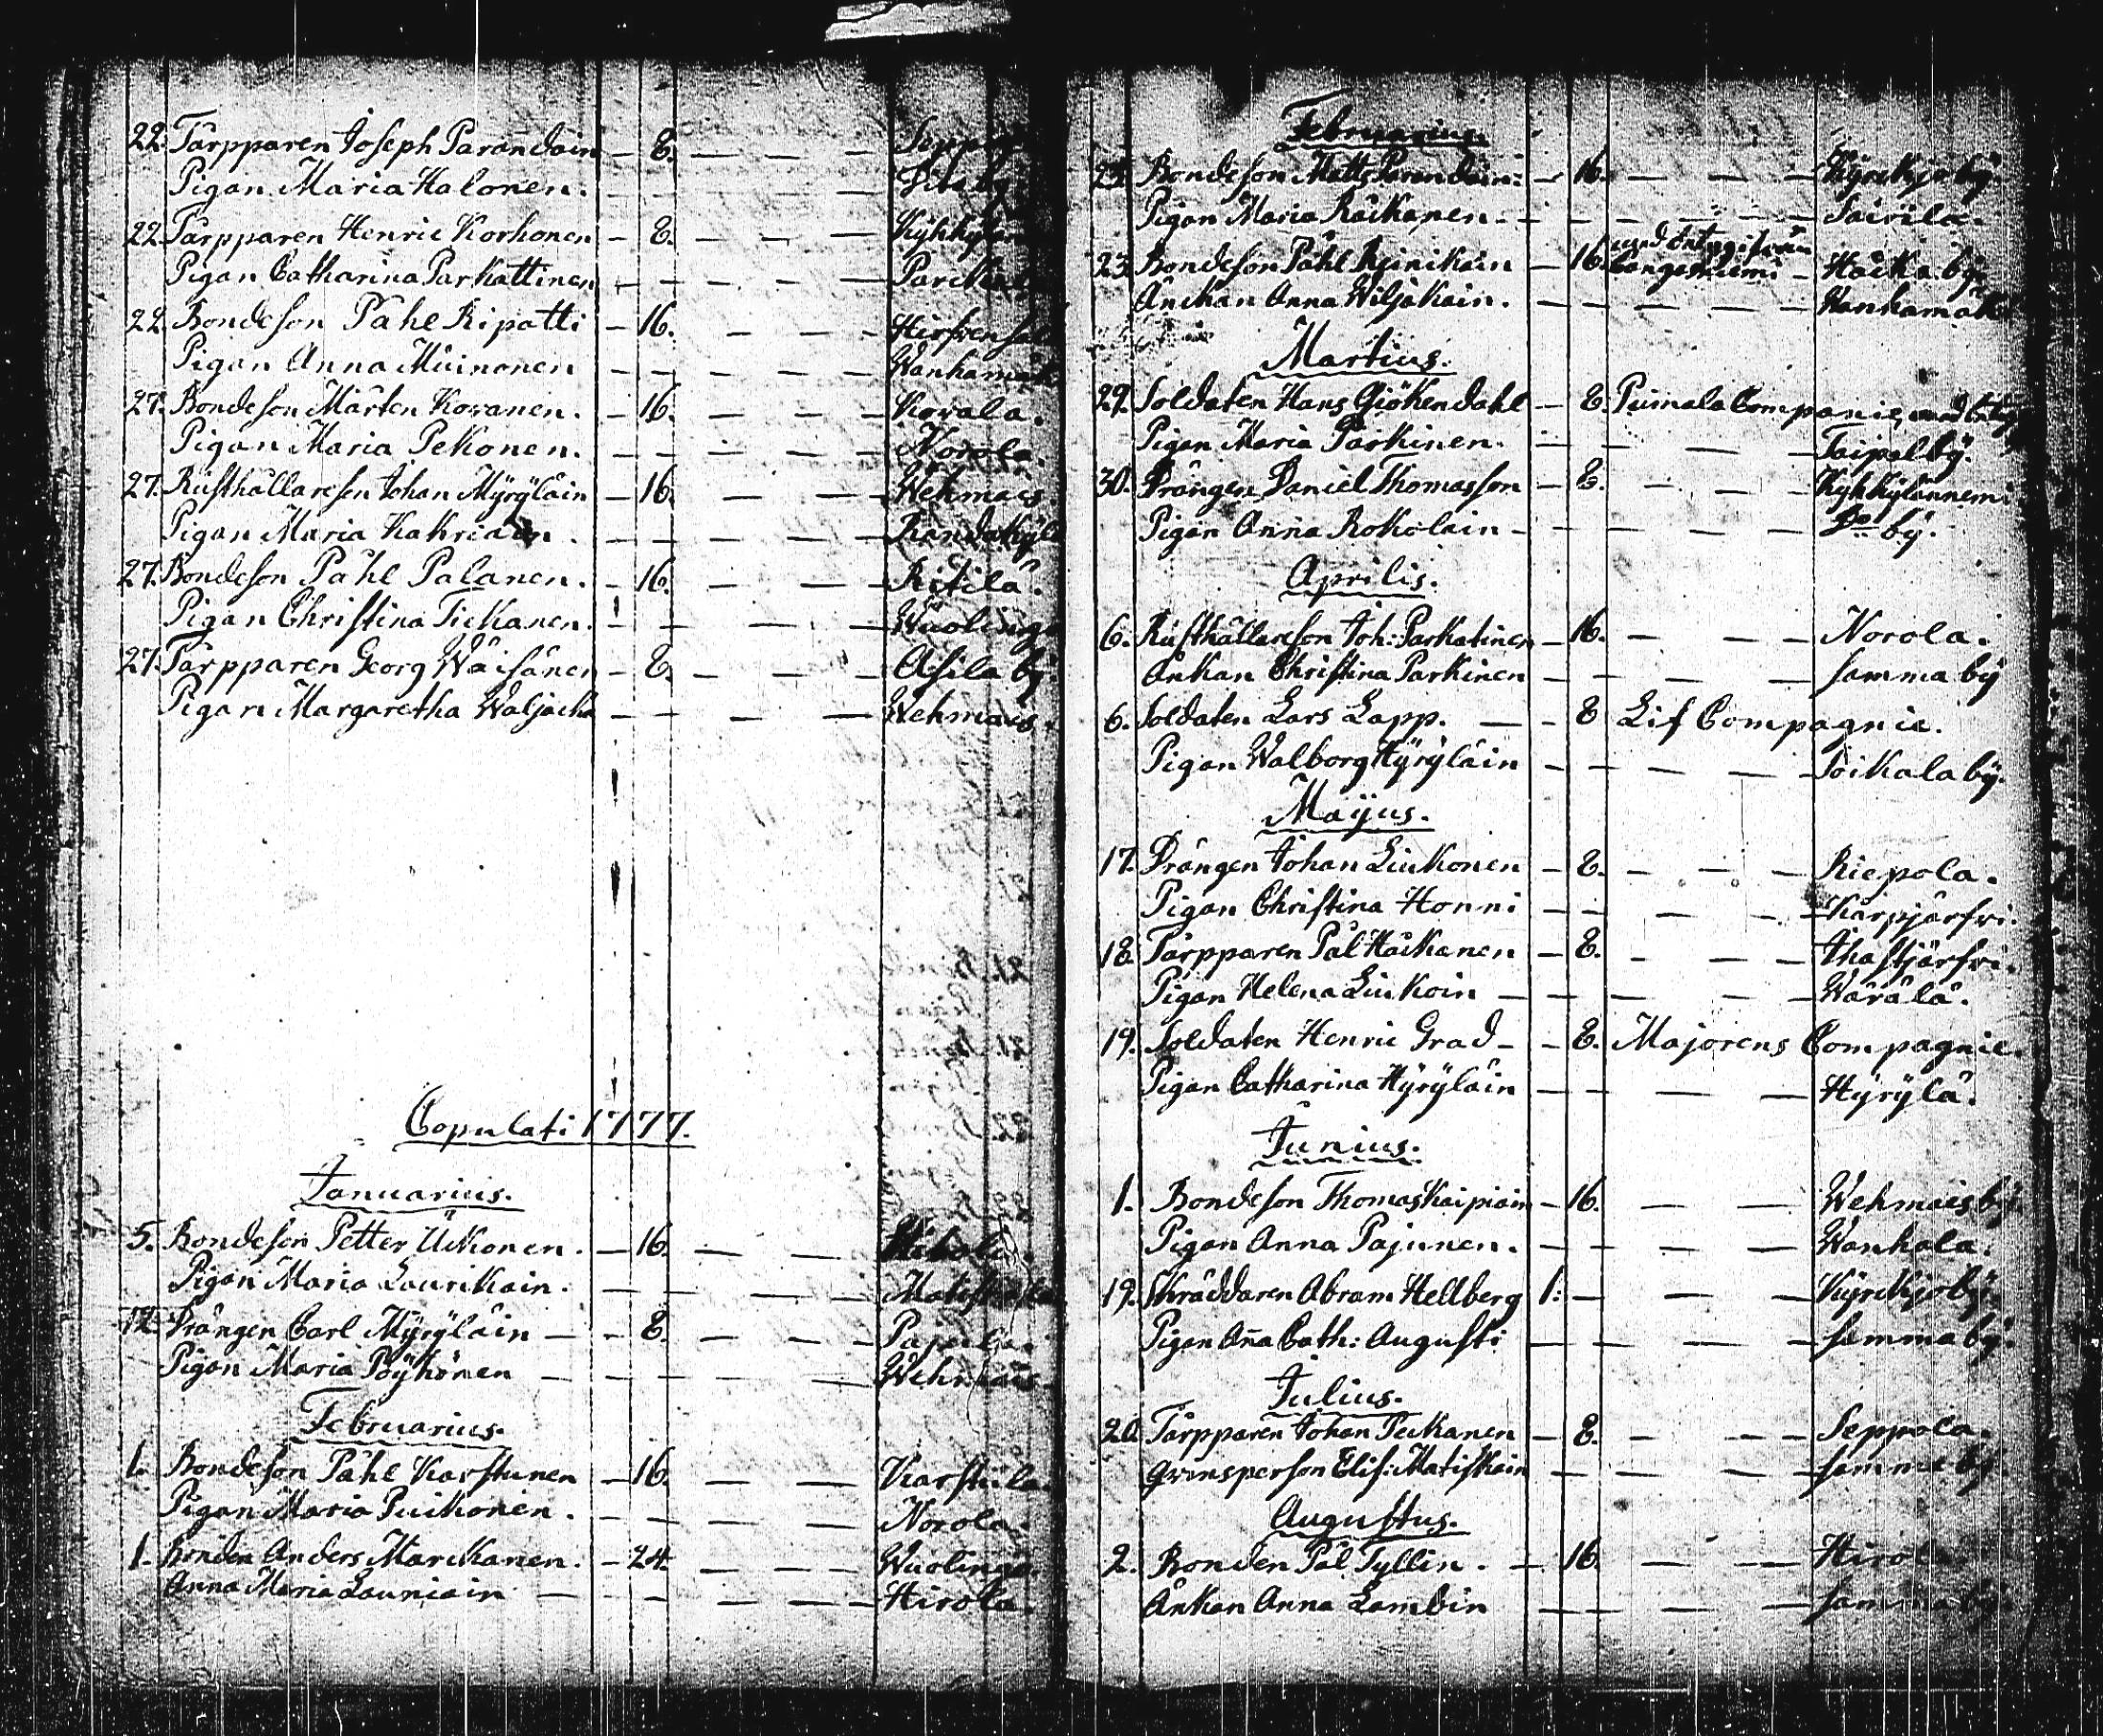 22. Tårpparen Joseph Parandain — 8. — — — Seppo
Pigan Maria Halonen. — — — —
22. Tårpparen Henric Korhonen — 8. — — — Kyhkylä
Pigan Catharina Parkattinen — — — —
22. Bondeson Påhl Ripatti — 16. — — — Hirfvensal
Pigan Anna Muinonen — — — — Wanhamäk
27. Bondeson Mårten Kovanen. — 16. — — — Kovala.
Pigan Maria Pekonen. — — — — Norola.
27. Rusthållareson Johan Myryläin — 16. — — — Wehmais.
Pigan Maria Kakriain. — — — — Randakylä
27. Bondeson Påhl Palanen. — 16. — — — Ritilä.
Pigan Christina Tiekanen. — — — — Wuolinge
27. Tårpparen Georg Wäisänen — 8. — — — Asila by.
Pigan Margaretha Waljacka — — — — Wehmais.
Copulati 1777.
Januarius.
5. Bondeson Petter Uckonen. — 16. — — —
Pigan Maria Laurikain. — — — —
12. Drängen Carl Myryläin — — 8. — — — Pajula.
Pigan Maria Pöyhönen — — — — Wehmais
Februarius.
1. Bondeson Påhl Karstunen — 16. — — — Karstila.
Pigan Maria Puikonen. — — — — Norola.
1. Bonden Anders Marckanen. — 24. — — — Wuolinge.
Anna Maria Launiain — — — — Hirola.
Februarius.
23. Bondeson Matts Parandain: — 16. — — — Kyrckjo by.
Pigan Maria Räikänen — — — — — Sairila.
med betyg ifrån
23. Bondeson Påhl Reinikain — 16. Cangasniemi — Häckä by.
Änckan Anna Wiljakain. — — — — Wanhamäk
Martius.
29. Soldaten Hans Gjökendahl — 8. Pumala Companie, med betyg
Pigan Maria Parkinen. — — — — Taipal by.
30. Drängen Daniel Thomasson — 8. — — — Kyhkylänniemi
Pigan Anna Rokolain — — — — Do by.
Aprilis.
6. Rusthållareson Joh: Parkatinen — 16. — — — Norola.
Änkan Christina Parkinen — — — — samma by
6. Soldaten Lars Lapp. — — 8 Lif Compagnie.
Pigan Walborg Hyryläin — — — — Soikala by.
Majus.
17. Drängen Johan Liukonen — 8. — — — Riepola.
Pigan Christina Honni — — — — Karpjärfvi.
18. Tårpparen Pål Häikänen — 8. — — — Ihastjärfvi.
Pigan Helena Liukoin — — — — Wärälä.
19. Soldaten Henric Grad — — 8. Majorens Compagnie.
Pigan Catharina Hyryläin — — — — Hyrylä.
Junius.
1. Bondeson Thomas Kaipiain — 16. — — — Wehmais by
Pigan Anna Pajunen. — — — — Wanhala.
19. Skräddaren Abram Hellberg 1: — — — Kyrckjo by.
Pigan Aña Cath: Augusti — — — — samma by.
Julius.
20. Tårpparen Johan Teckanen — 8. — — — Seppola.
Qvinsperson Elis: Matiskain — — — — samma by.
Augustus.
2. Bonden Pål Tyllin. — 16. — — — Hirola
Änkan Anna Lambin — — — — samma by.